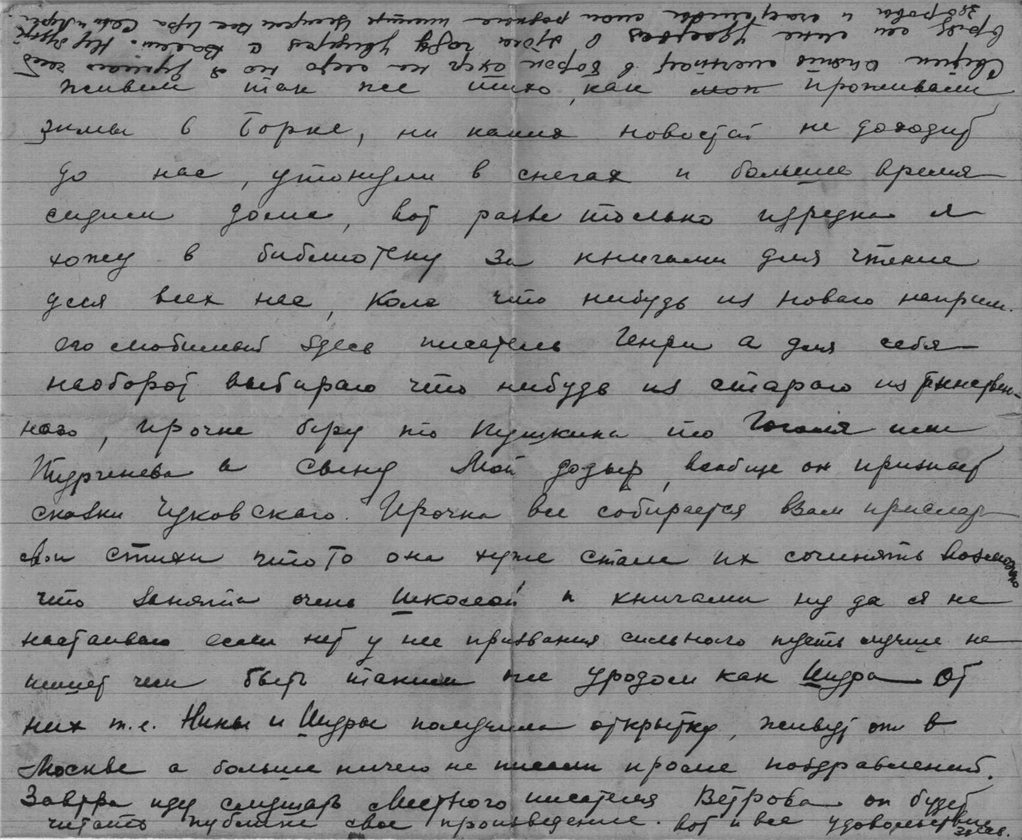 живем так же тихо, как мол проживали
зимы в Борке, ни каких новостей не доходит
до нас, утонули в снегах и больше время
сидим дома, вот разве только изредка я
хожу в библиотеку за книгами для чтение
для всех нас, Коле что нибудь из новаго наприм.
его любимый здесь писатель Генри а для себя
наоборот выбираю что нибудь из стараго из
наго, Ирочке беру то Пушкина то Гоголя или
Тургенева а сыну Мой додыр, вообще он признает
сказки Чуковскаго. Ирочка все собирается Вам прислать
свои стихи что то она хуже стала их сочинять возможно
что занята очень школой и книгами ну да я не
настаиваю если нет у нее призвания сильного пусть лучше не
пишет чем быть таким же уродом как Шура От
них т.е. Нины и Шуры получила открытку, живут они в
Москве а больше ничего не писали кроме поздравлений.
Завтра иду слушать местного писателя Ветрова он будет
читать публике свое произведение. вот и все удовольствие
здоровы и счастливы мои родные пишите
в этом году
Борок но